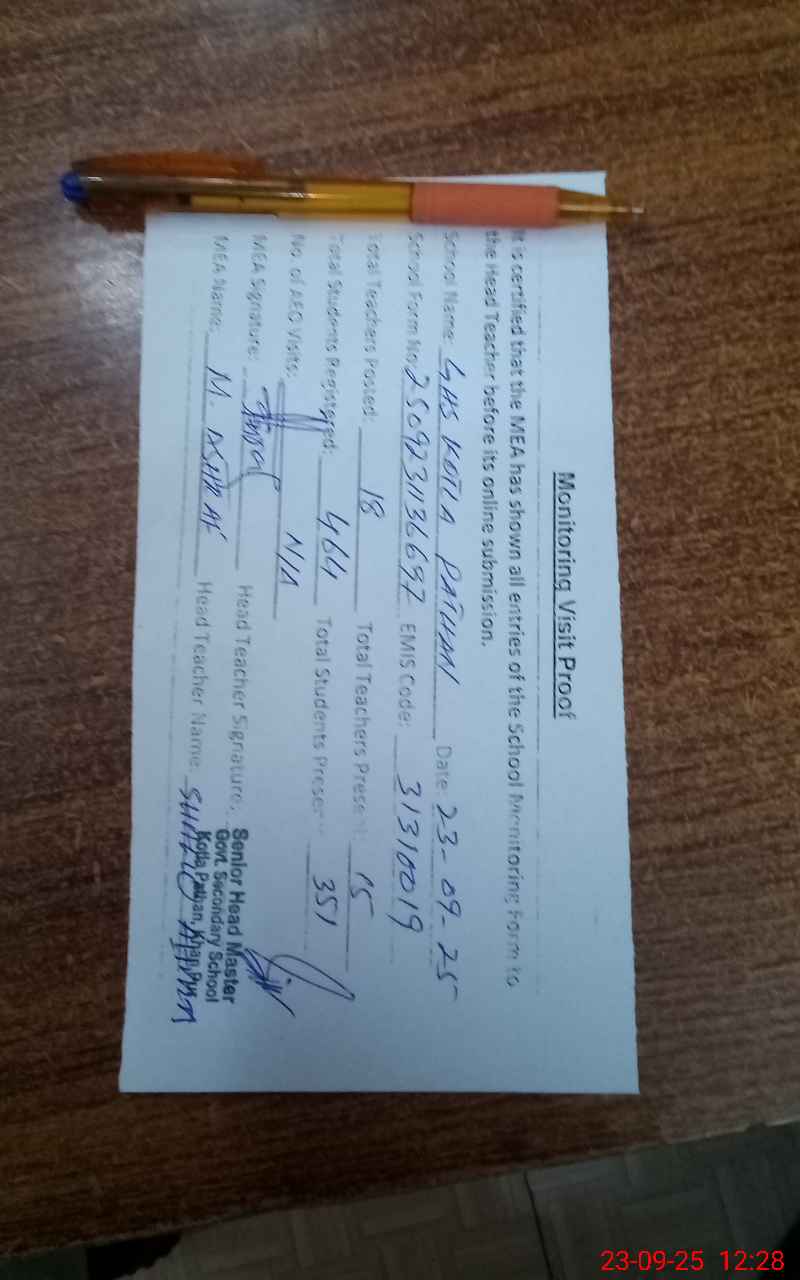 Monitoring Visit Proof
It is certified that the MEA has shown all entries of the School Monitoring Form to
the Head Teacher before its online submission.
School Name: GHS KOTLA PATHAN Date: 23-09-25
School Form No: 2509231136697 EMIS Code: 31310019
Total Teachers Posted: 18 Total Teachers Present: 15
Total Students Registered: 464 Total Students Present: 351
No. of AEO Visits: N/A
MEA Signature: Head Teacher Signature:
MEA Name: M. ASHRAF Head Teacher Name:
Senior Head Master
Govt. Secondary School
Kotla Pathan, Khan Pur
23-09-25 12:28